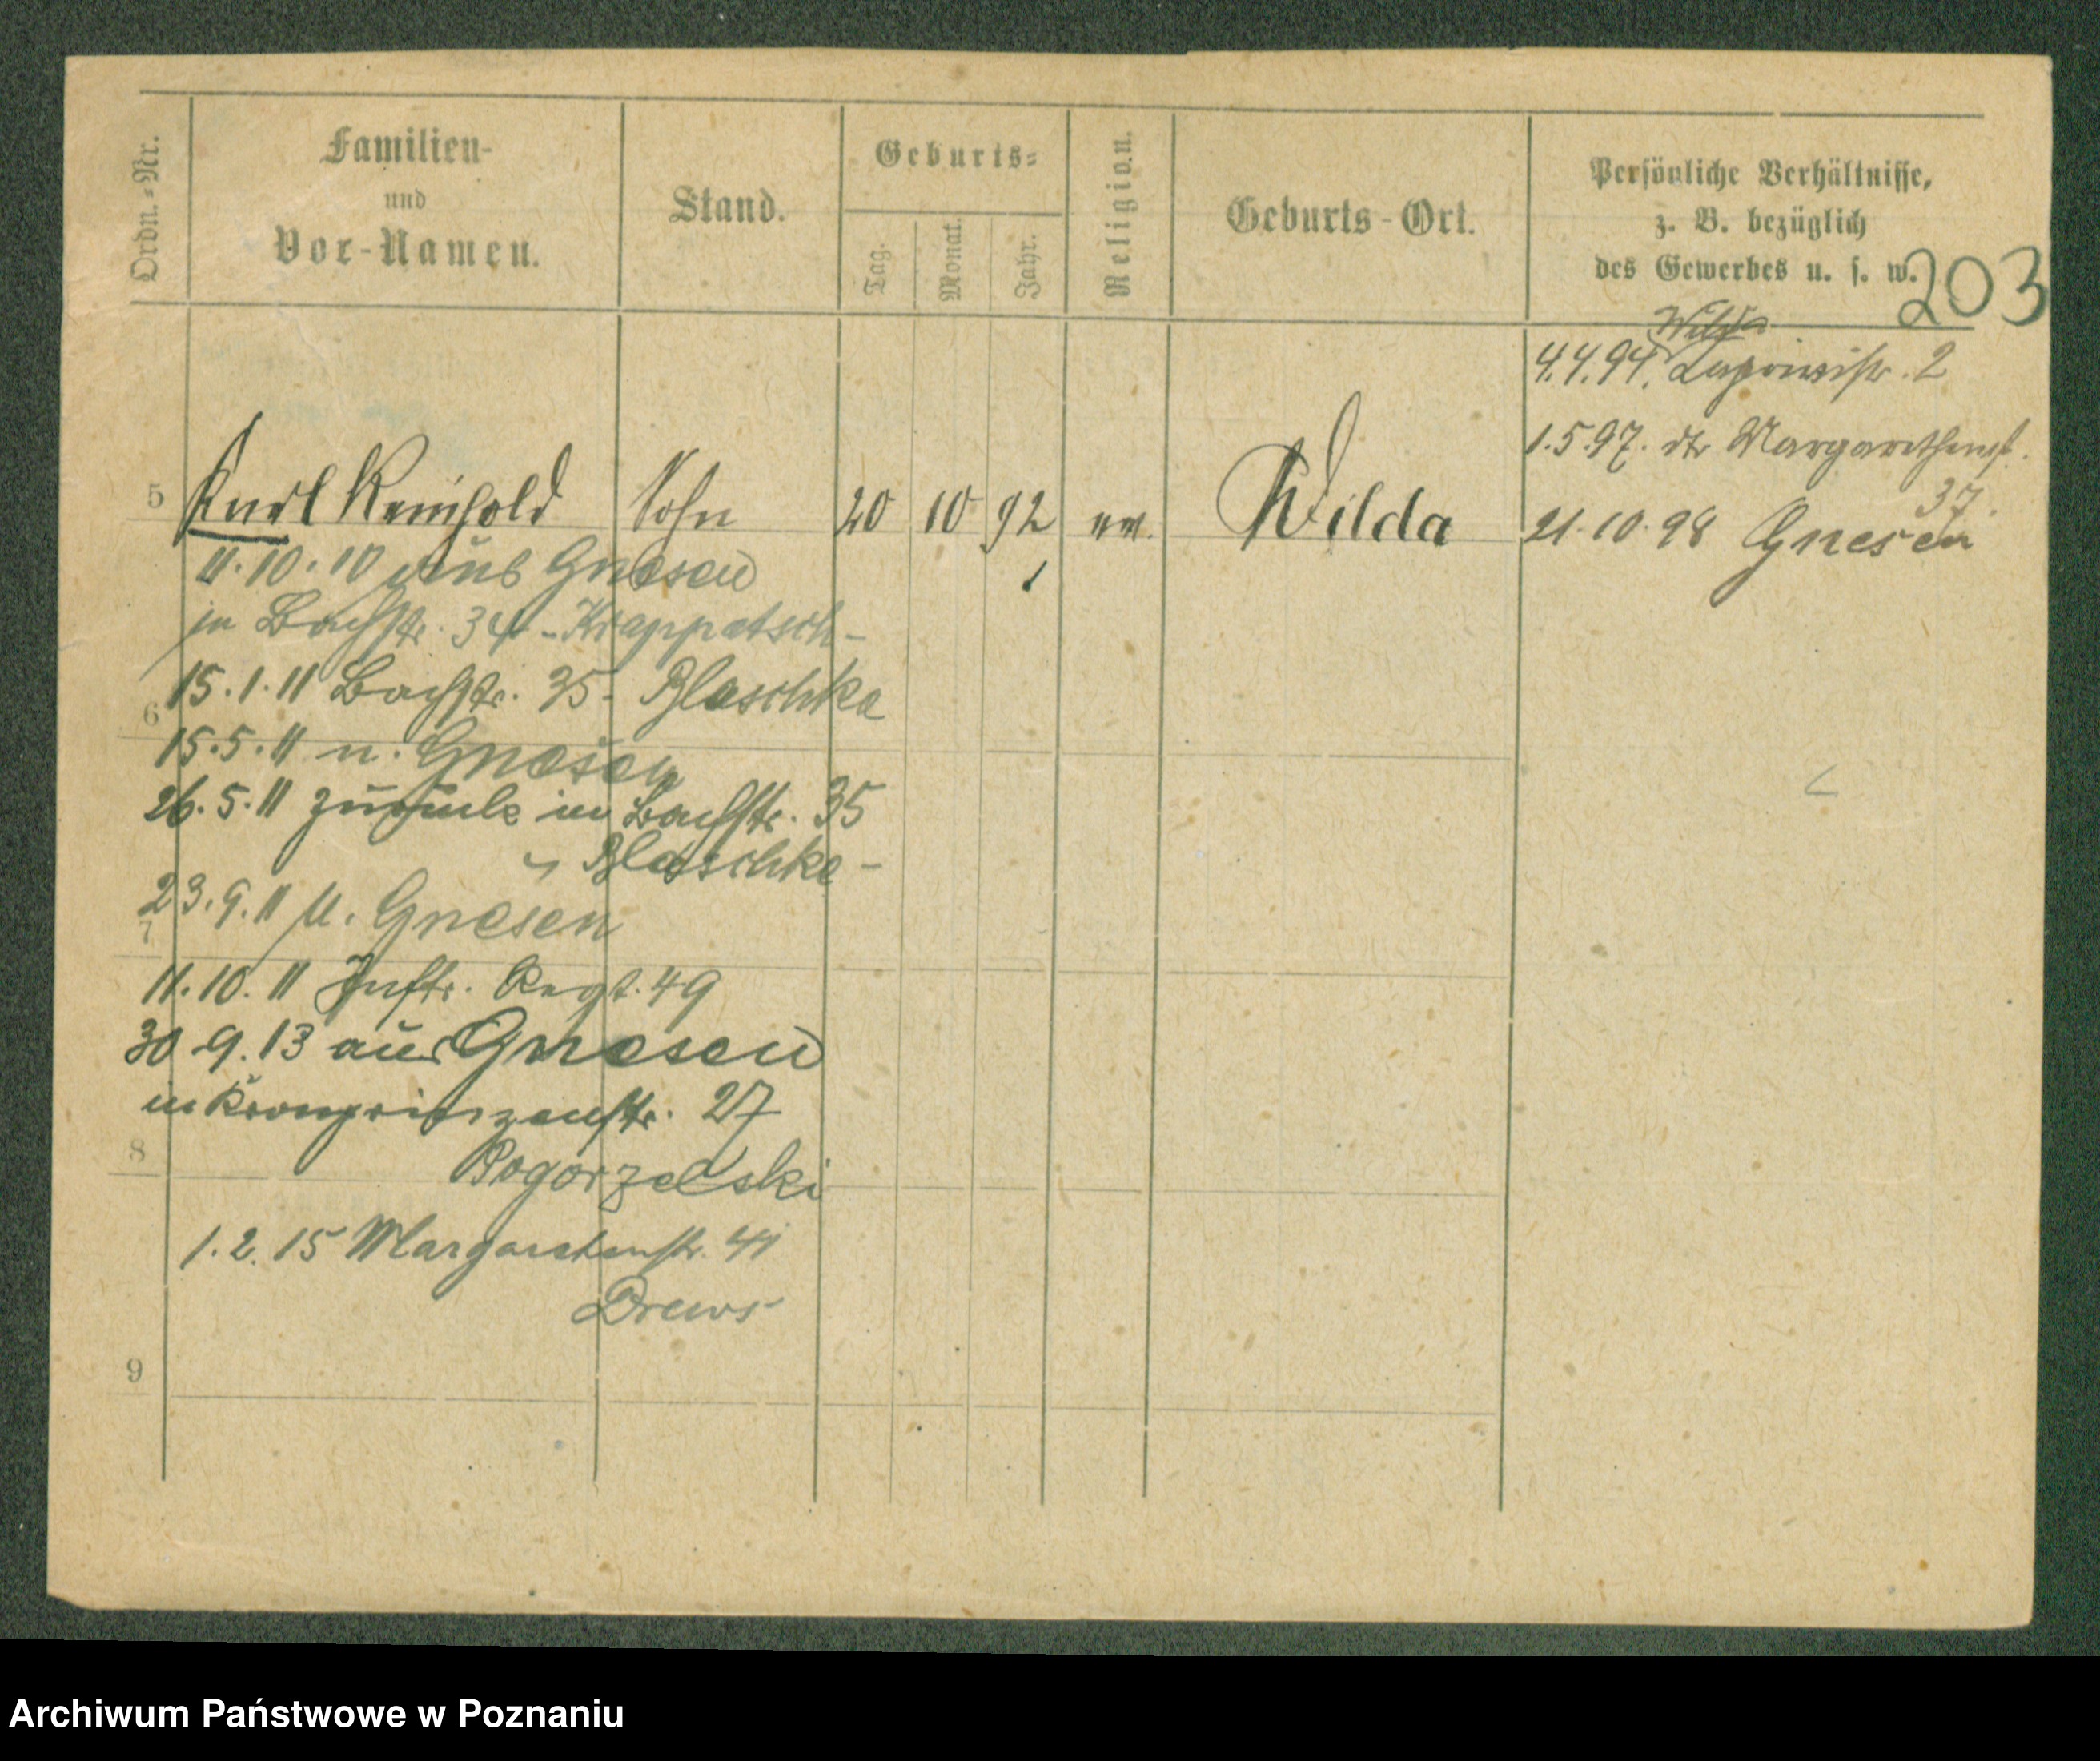 Ordn.-Nr.
Familien-
und
Vor-Namen.
Stand.
Geburts-
Tag.
Monat.
Jahr.
Religion.
Geburts-Ort.
Persönliche Verhältnisse,
z. B. bezüglich
des Gewerbes u. s. w.
203
Wilda
4.4.94. 2
1.5.97. Margarethenst.
37.
5 Karl Reinhold Sohn 20 10 92 ev. Wilda 21.10.98 Gnesen
11.10.10 aus Gnesen
in Bachstr. 34 - Krappatsch -
15.1.11 Bachstr. 35 - Blaschka
6
15.5.11 n. Gnesen
26.5.11 zurück in Bachstr. 35
Blaschka -
23.9.11 n. Gnesen
7
11.10.11 Inftr. Regt. 49
30.9.13 aus Gnesen
in Kronprinzenstr. 27
8
Pogorzelski
1.2.15 Margaretenstr. 41
Drews
9
Archiwum Państwowe w Poznaniu